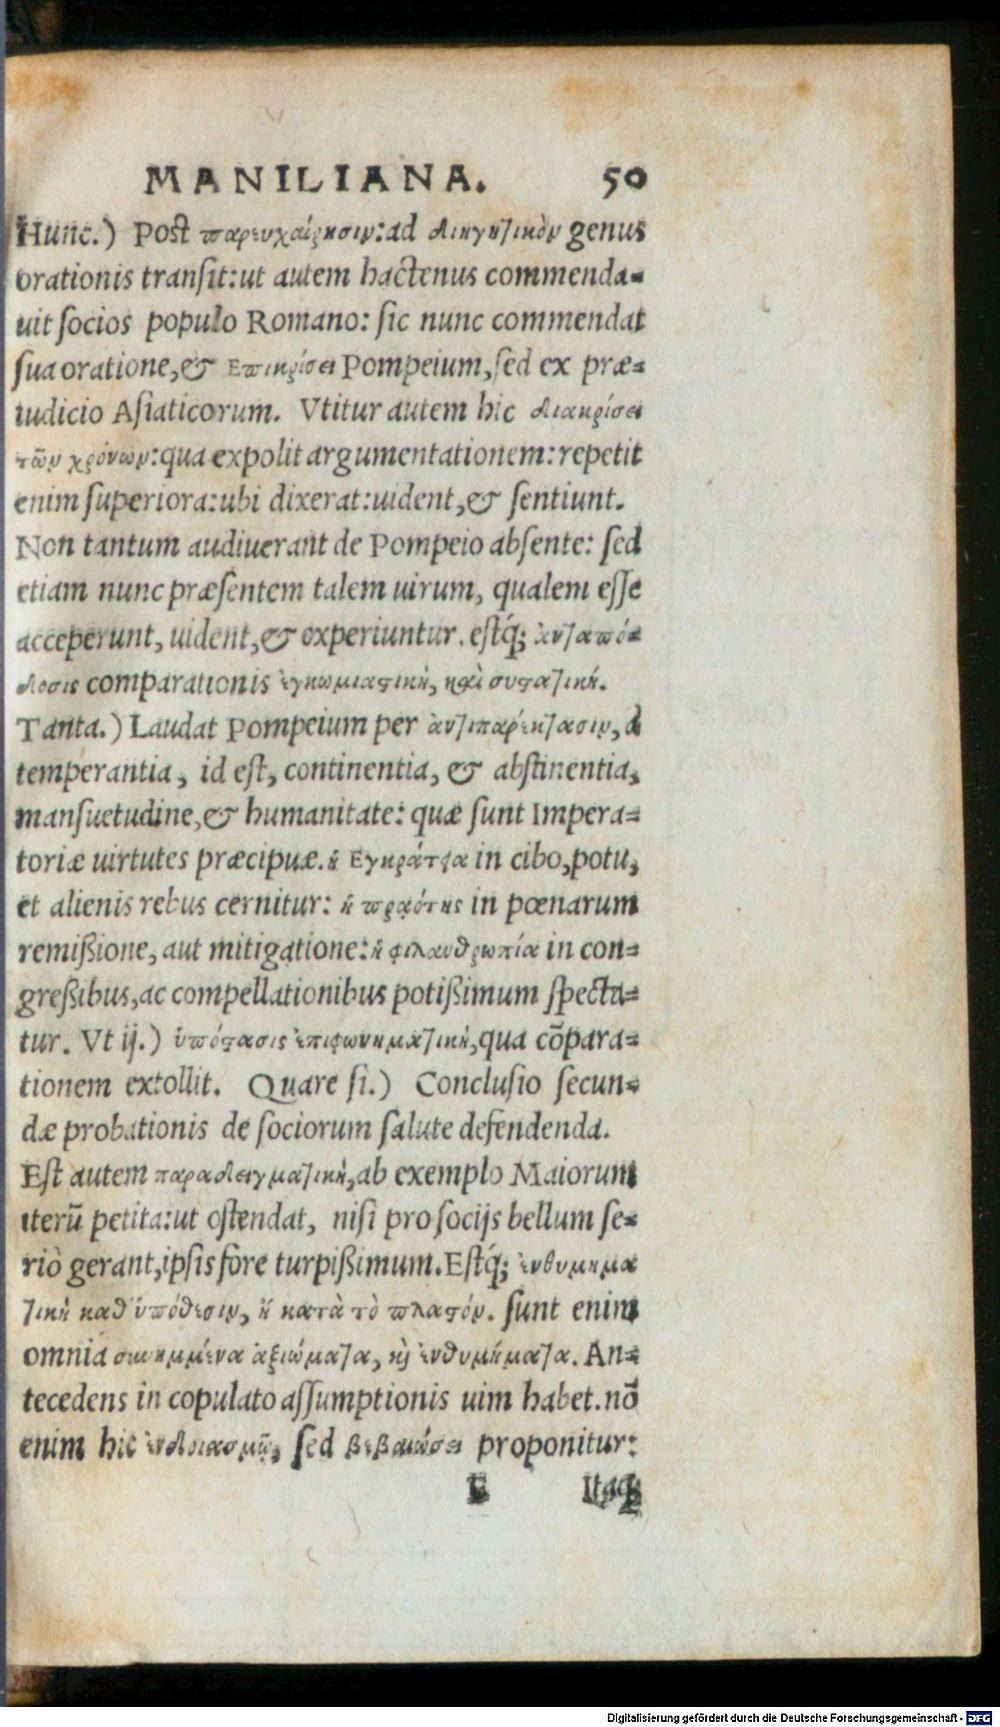 MANILIANA. 50
Hunc.) Post παρενχαίρησιν: ad διηγητικὸν genus
orationis transit: ut autem hactenus commenda-
uit socios populo Romano: sic nunc commendat
sua oratione, & Επικρίσει Pompeium, sed ex præ-
iudicio Asiaticorum. Vtitur autem hic διακρίσει
τῶν χρόνων: qua expolit argumentationem: repetit
enim superiora: ubi dixerat: uident, & sentiunt.
Non tantum audiuerant de Pompeio absente: sed
etiam nunc præsentem talem uirum, qualem esse
acceperunt, uident, & experiuntur. estq́; ἀνταπό-
δοσις comparationis ἐγκωμιαστικὴ, καὶ συστατική.
Tanta.) Laudat Pompeium per ἀντιπαρέκτασιν, à
temperantia, id est, continentia, & abstinentia,
mansuetudine, & humanitate: quæ sunt Impera-
toriæ uirtutes præcipuæ. ἡ Εγκράτεια in cibo, potu,
et alienis rebus cernitur: ἡ πραότης in pœnarum
remißione, aut mitigatione: ἡ φιλανθρωπία in con-
greßibus, ac compellationibus potißimum specta-
tur. Vt ij.) ὑπόστασις ἐπιφωνηματικὴ, qua cõpara-
tionem extollit. Quare si.) Conclusio secun-
dæ probationis de sociorum salute defendenda.
Est autem παραδειγματικὴ, ab exemplo Maiorum
iterũ petita: ut ostendat, nisi pro socijs bellum se-
riò gerant, ipsis fore turpißimum. Estq́; ἐνθυμημα
τικὴ καθ' ὑπόθεσιν, ἢ κατὰ τὸ πλαστόν. sunt enim
omnia συνημμένα ἀξιώματα, καὶ ἐνθυμήματα. An-
tecedens in copulato assumptionis uim habet. nõ
enim hic ἐνδοιασμῷ, sed βεβαιώσει proponitur:
Itaq;